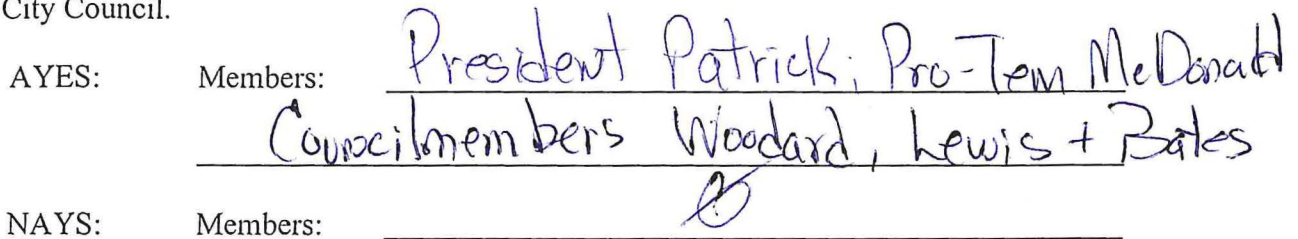 City Council.
AYES: Members: President Patrick; Pro-Tem McDonald
Councilmembers Woodard, Lewis + Bates
NAYS: Members: Ø